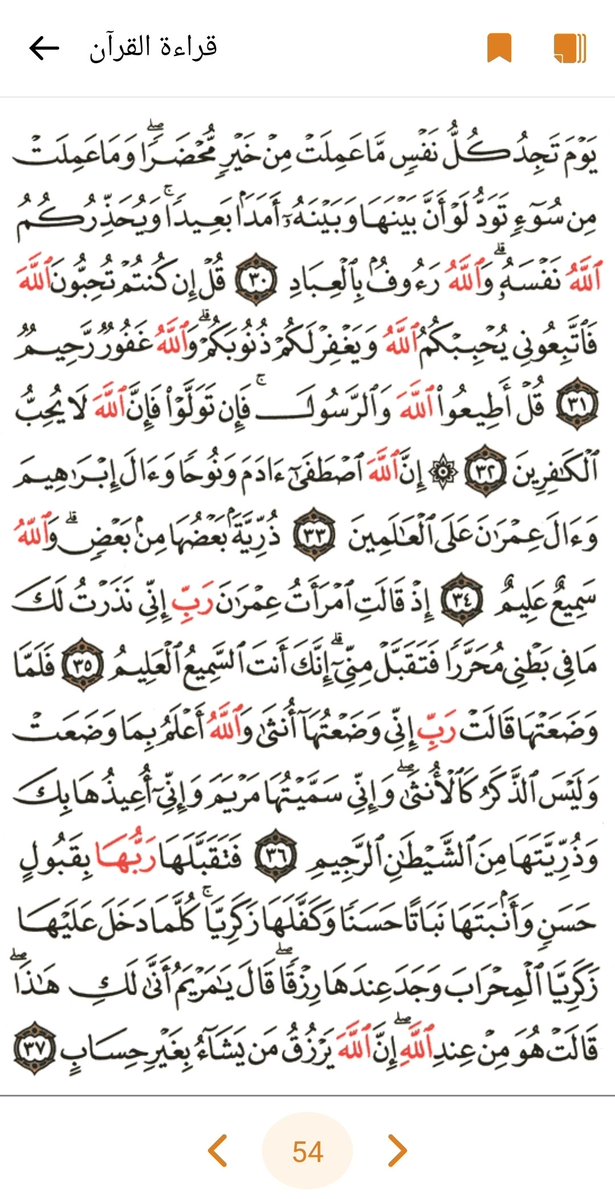 قراءة القرآن
يَوْمَ تَجِدُ كُلُّ نَفْسٍ مَّا عَمِلَتْ مِنْ خَيْرٍ مُّحْضَرًا ۖ وَمَا عَمِلَتْ
مِن سُوٓءٍ تَوَدُّ لَوْ أَنَّ بَيْنَهَا وَبَيْنَهُۥٓ أَمَدَۢا بَعِيدًا ۚ وَيُحَذِّرُكُمُ
ٱللَّهُ نَفْسَهُۥ ۗ وَٱللَّهُ رَءُوفُۢ بِٱلْعِبَادِ ٣٠ قُلْ إِن كُنتُمْ تُحِبُّونَ ٱللَّهَ
فَٱتَّبِعُونِى يُحْبِبْكُمُ ٱللَّهُ وَيَغْفِرْ لَكُمْ ذُنُوبَكُمْ ۗ وَٱللَّهُ غَفُورٌ رَّحِيمٌ
٣١ قُلْ أَطِيعُوا۟ ٱللَّهَ وَٱلرَّسُولَ ۖ فَإِن تَوَلَّوْا۟ فَإِنَّ ٱللَّهَ لَا يُحِبُّ
ٱلْكَٰفِرِينَ ٣٢ ۞ إِنَّ ٱللَّهَ ٱصْطَفَىٰٓ ءَادَمَ وَنُوحًا وَءَالَ إِبْرَٰهِيمَ
وَءَالَ عِمْرَٰنَ عَلَى ٱلْعَٰلَمِينَ ٣٣ ذُرِّيَّةَۢ بَعْضُهَا مِنۢ بَعْضٍ ۗ وَٱللَّهُ
سَمِيعٌ عَلِيمٌ ٣٤ إِذْ قَالَتِ ٱمْرَأَتُ عِمْرَٰنَ رَبِّ إِنِّى نَذَرْتُ لَكَ
مَا فِى بَطْنِى مُحَرَّرًا فَتَقَبَّلْ مِنِّىٓ ۖ إِنَّكَ أَنتَ ٱلسَّمِيعُ ٱلْعَلِيمُ ٣٥ فَلَمَّا
وَضَعَتْهَا قَالَتْ رَبِّ إِنِّى وَضَعْتُهَآ أُنثَىٰ وَٱللَّهُ أَعْلَمُ بِمَا وَضَعَتْ
وَلَيْسَ ٱلذَّكَرُ كَٱلْأُنثَىٰ ۖ وَإِنِّى سَمَّيْتُهَا مَرْيَمَ وَإِنِّىٓ أُعِيذُهَا بِكَ
وَذُرِّيَّتَهَا مِنَ ٱلشَّيْطَٰنِ ٱلرَّجِيمِ ٣٦ فَتَقَبَّلَهَا رَبُّهَا بِقَبُولٍ
حَسَنٍ وَأَنۢبَتَهَا نَبَاتًا حَسَنًا وَكَفَّلَهَا زَكَرِيَّا ۖ كُلَّمَا دَخَلَ عَلَيْهَا
زَكَرِيَّا ٱلْمِحْرَابَ وَجَدَ عِندَهَا رِزْقًا ۖ قَالَ يَٰمَرْيَمُ أَنَّىٰ لَكِ هَٰذَا ۖ
قَالَتْ هُوَ مِنْ عِندِ ٱللَّهِ ۖ إِنَّ ٱللَّهَ يَرْزُقُ مَن يَشَآءُ بِغَيْرِ حِسَابٍ ٣٧
54